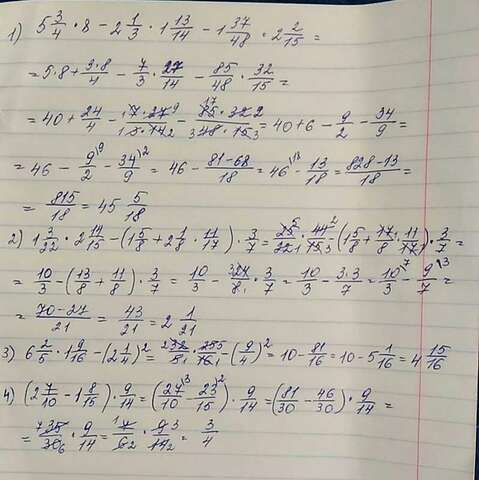 1) 5 3/4 · 8 − 2 1/3 · 1 13/14 − 1 37/48 · 2 2/15 =
= 5·8 + 3·8/4 − 7/3 · 27/14 − 85/48 · 32/15 =
= 40 + 24/4 − 7·27 9/1 3·14 2 − 17 85·32 2/3 48·15 3 = 40 + 6 − 9/2 − 34/9 =
= 46 − 9/2 \9 − 34/9 \2 = 46 − 81−68/18 = 46 \18 − 13/18 = 828−13/18 =
= 815/18 = 45 5/18
2) 1 3/22 · 2 14/15 − (1 5/8 + 2 1/8 · 11/17) · 3/7 = 25 5/22 1 · 44 2/15 3 − (1 5/8 + 17 1/8 · 11/17 1) · 3/7 =
= 10/3 − (13/8 + 11/8) · 3/7 = 10/3 − 24 3/8 1 · 3/7 = 10/3 − 3·3/7 = 10/3 \7 − 9/7 \3 =
= 70−27/21 = 43/21 = 2 1/21
3) 6 2/5 · 1 9/16 − (2 1/4)² = 2 32/5 1 · 25 5/16 1 − (9/4)² = 10 − 81/16 = 10 − 5 1/16 = 4 15/16
4) (2 7/10 − 1 8/15) · 9/14 = (27/10 \3 − 23/15 \2) · 9/14 = (81/30 − 46/30) · 9/14 =
= 7 35/30 6 · 9/14 = 1 7/6 2 · 9 3/14 2 = 3/4